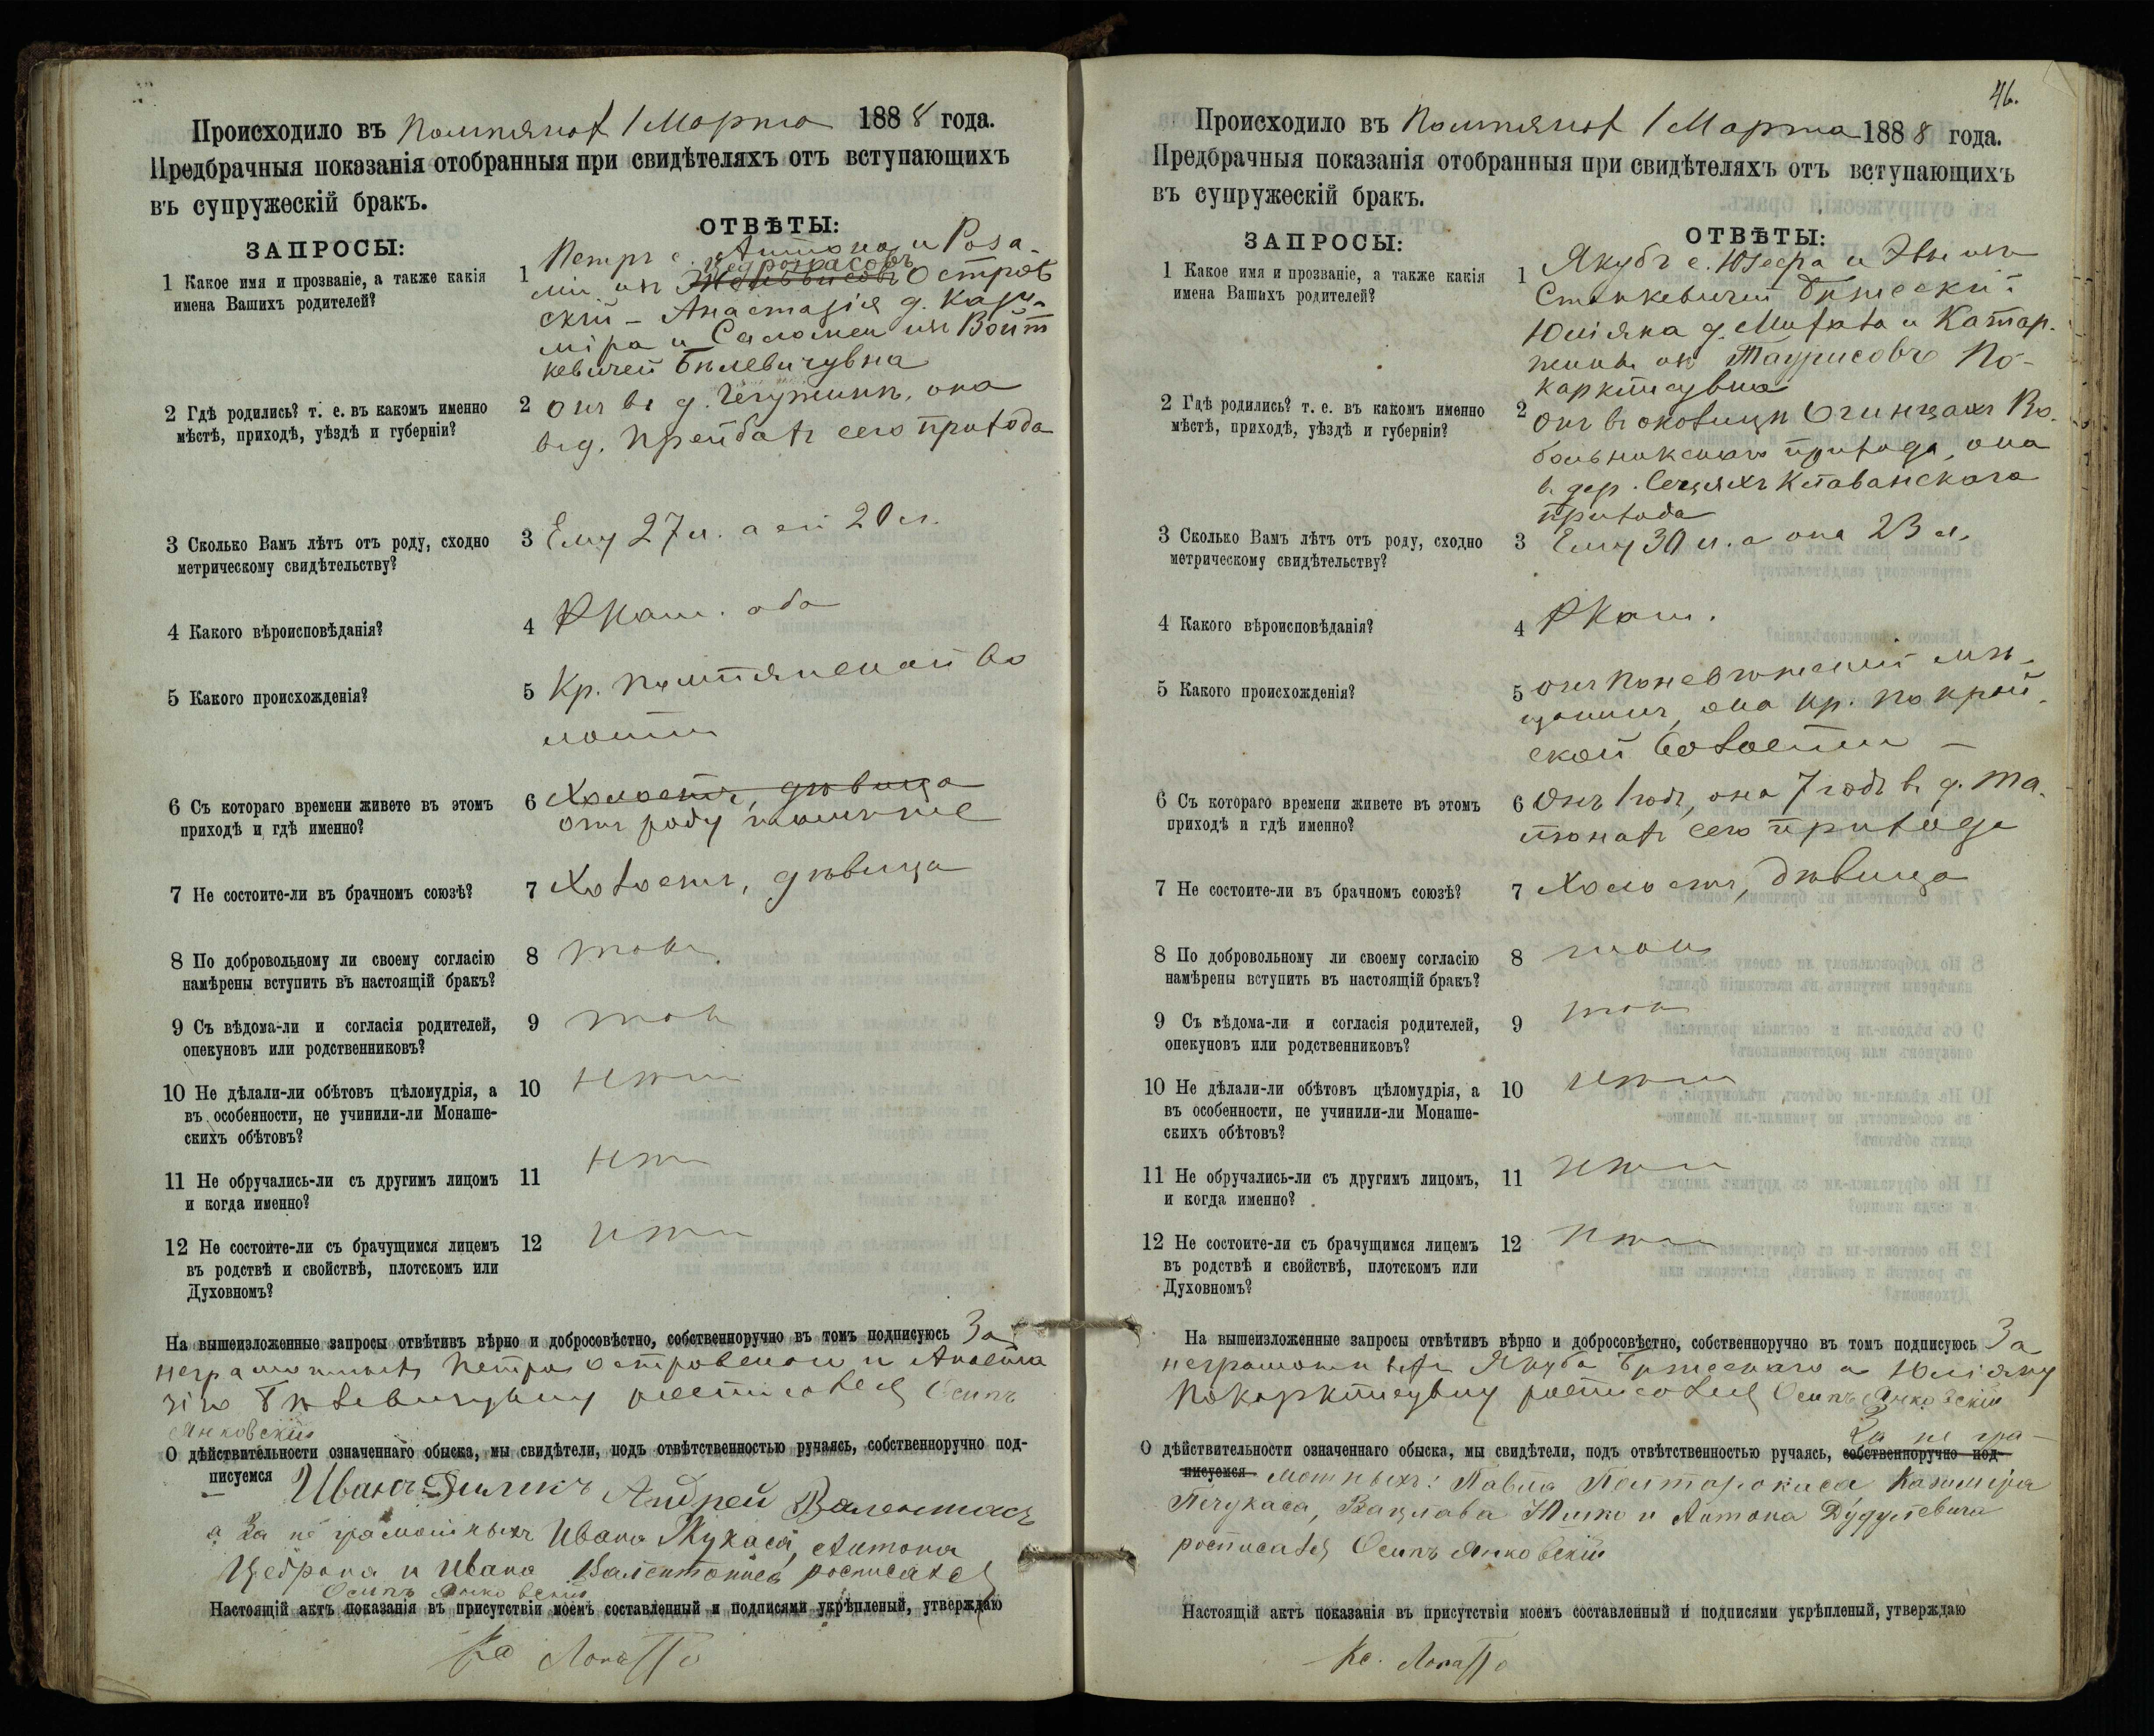 Происходило въ Помпянахъ 1 Марта 1888 года.
Предбрачныя показанія отобранныя при свидѣтеляхъ отъ вступающихъ
въ супружескій бракъ.
ЗАПРОСЫ:
ОТВѢТЫ:
1 Какое имя и прозваніе, а также какія
имена Вашихъ родителей?
1 Петръ с. Антона и Роза-
ліи изъ Островскій — Анастазія д. Кази-
міра и Саломеи изъ Войт
кевичей Бѣлевичувна
2 Гдѣ родились? т. е. въ какомъ именно
мѣстѣ, приходѣ, уѣздѣ и губерніи?
2 онъ въ д. она
въ д. сего прихода
3 Сколько Вамъ лѣтъ отъ роду, сходно
метрическому свидѣтельству?
3 Ему 27 л. а ей 20 л.
4 Какого вѣроисповѣданія?
4 РКат. оба
5 Какого происхожденія?
5 Кр. Помпянской во
лости
6 Съ котораго времени живете въ этомъ
приходѣ и гдѣ именно?
6 Холостъ, дѣвица
отъ роду
7 Не состоите-ли въ брачномъ союзѣ?
7 Холостъ, дѣвица
8 По добровольному ли своему согласію
намѣрены вступить въ настоящій бракъ?
8 такъ
9 Съ вѣдома-ли и согласія родителей,
опекуновъ или родственниковъ?
9 такъ
10 Не дѣлали-ли обѣтовъ цѣломудрія, а
въ особенности, не учинили-ли Монаше-
скихъ обѣтовъ?
10 нѣтъ
11 Не обручались-ли съ другимъ лицомъ
и когда именно?
11 нѣтъ
12 Не состоите-ли съ брачущимся лицемъ
въ родствѣ и свойствѣ, плотскомъ или
Духовномъ?
12 нѣтъ
На вышеизложенные запросы отвѣтивъ вѣрно и добросовѣстно, собственноручно въ томъ подписуюсь За
неграмотныхъ Петра Островскаго и Анаста
зію Бѣлевичувну росписался Осипъ
Янковскій
О дѣйствительности означеннаго обыска, мы свидѣтели, подъ отвѣтственностью ручаясь, собственноручно под-
писуемся Иванъ Андрей Валентасъ
а за не грамотныхъ Ивана Жукаса, Антона
и Ивана росписался
Осипъ Янковскій
Настоящій актъ показанія въ присутствіи моемъ составленный и подписями укрѣпленый, утверждаю
46.
Происходило въ Помпянахъ 1 Марта 1888 года.
Предбрачныя показанія отобранныя при свидѣтеляхъ отъ вступающихъ
въ супружескій бракъ.
ЗАПРОСЫ:
ОТВѢТЫ:
1 Какое имя и прозваніе, а также какія
имена Вашихъ родителей?
1 Якубъ с. Юзефа и Эвы изъ
Станкевичей Бржескій
Юліяна д. Михала и Катар-
жины изъ Таурисовъ По-
карклисувна
2 Гдѣ родились? т. е. въ какомъ именно
мѣстѣ, приходѣ, уѣздѣ и губерніи?
2 Онъ въ околицѣ Огинцахъ Во-
больникскаго прихода, она
въ дер. прихода
3 Сколько Вамъ лѣтъ отъ роду, сходно
метрическому свидѣтельству?
3 Ему 30 л. а она 23 л.
4 Какого вѣроисповѣданія?
4 РКат.
5 Какого происхожденія?
5 онъ Поневѣжскій мѣ-
щанинъ, она кр. Покрой-
ской волости —
6 Съ котораго времени живете въ этомъ
приходѣ и гдѣ именно?
6 Онъ 1 годъ, она 7 годъ въ д.
сего прихода
7 Не состоите-ли въ брачномъ союзѣ?
7 Холостъ, дѣвица
8 По добровольному ли своему согласію
намѣрены вступить въ настоящій бракъ?
8 такъ
9 Съ вѣдома-ли и согласія родителей,
опекуновъ или родственниковъ?
9 такъ
10 Не дѣлали-ли обѣтовъ цѣломудрія, а
въ особенности, не учинили-ли Монаше-
скихъ обѣтовъ?
10 нѣтъ
11 Не обручались-ли съ другимъ лицомъ,
и когда именно?
11 нѣтъ
12 Не состоите-ли съ брачущимся лицемъ
въ родствѣ и свойствѣ, плотскомъ или
Духовномъ?
12 нѣтъ
На вышеизложенные запросы отвѣтивъ вѣрно и добросовѣстно, собственноручно въ томъ подписуюсь За
неграмотныхъ Якуба Бржескаго и Юліяну
Покарклисувну росписался Осипъ Янковскій
О дѣйствительности означеннаго обыска, мы свидѣтели, подъ отвѣтственностью ручаясь, собственноручно под-
писуемся За не гра-
мотныхъ: Павла Казиміра
Печукаса, Вацлава и Антона Дудулевича
росписался Осипъ Янковскій
Настоящій актъ показанія въ присутствіи моемъ составленный и подписями укрѣпленый, утверждаю